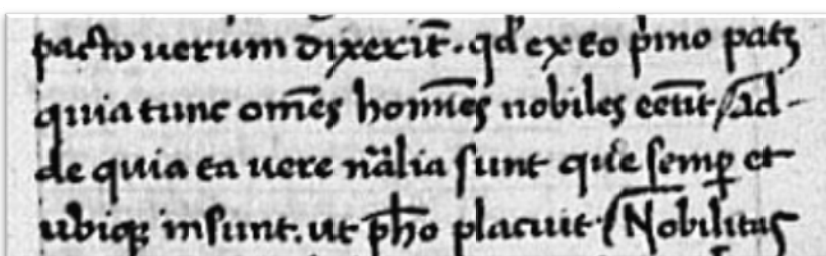 pacto uerum dixerit̄. qđ ex eo p̍mo patꝫ
quia tunc om̄es homīes nobiles eēnt / ad-
de quia ea uere nāalia sunt que semꝑ et
ubiqꝫ insunt. ut pħo placuit / Nobilitas